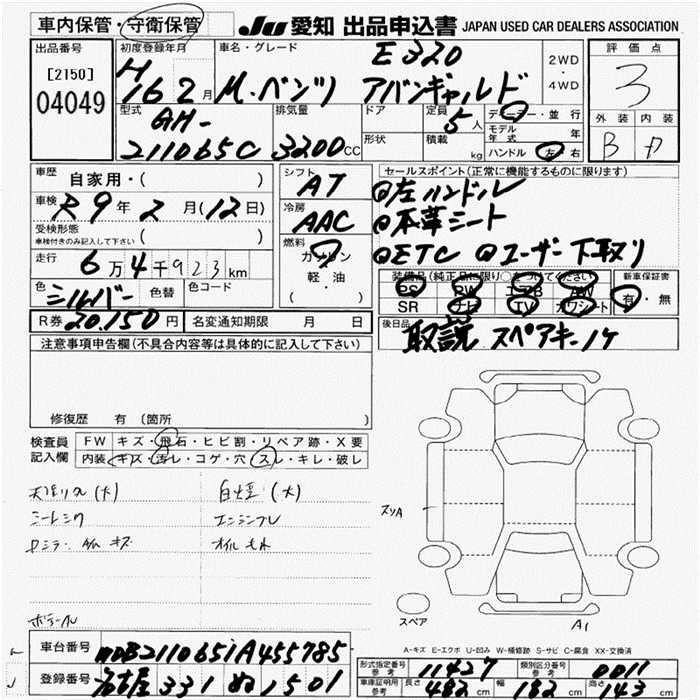 車内保管・守衛保管
JU 愛知 出品申込書 JAPAN USED CAR DEALERS ASSOCIATION
出品番号
[2150]
04049
初度登録年月
H 16 2月
車名・グレード
E320
M.ベンツ アバンギャルド
2WD・4WD
評価点
3
外装 内装
B D
型式
GH-
211065C
排気量
3200CC
ドア
形状
定員
5人
積載 kg
ディーラー・並行
モデル年式 年
ハンドル 左 右
車歴
自家用・( )
車検
R9年2月(12日)
受検形態
車検付きのみ記入して下さい ( )
走行
6万4千923km
色 シルバー 色替 色コード
シフト
AT
冷房
AAC
燃料
ガソリン
軽・油
( )
セールスポイント(正常に機能するものに限ります)
@左ハンドル
@本革シート
@ETC @ユーザー下取り
装備品(純正品に限り○をつけてください)
PS PW エアB AW
SR ナビ TV カワシート
新車保証書
有・無
R券 20,150円 名変通知期限 月 日
後日品
取説 スペアキー1ケ
注意事項申告欄(不具合内容等は具体的に記入して下さい)
修復歴 有 (箇所 )
検査員記入欄
FW キズ・飛石・ヒビ割・リペア跡・X要
内装 キズ・汚レ・コゲ・穴・スレ・キレ・破レ
白煙(大)
オイルもれ
スリA
スペア
A1
A-キズ E-エクボ U-凹み W-補修跡 S-サビ C-腐食 XX-交換済
車台番号 WDB2110651A455785
登録番号 名古屋 331 ぬ 1501
形式指定番号 参考 11427
類別区分番号 参考 0011
車庫証明用 参考 長さ 482cm 幅 182cm 高さ 143cm